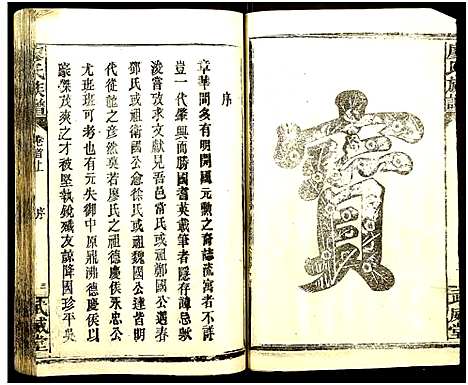 廖氏族譜
寶
武威堂
序
章華間多有明開國元勳之裔誌流寓者不詳
豈一代肇興而勝國耆英載筆者隱存滄息歟
浚嘗求文獻見吾邑常氏或祖鄭國公遇春
鄧氏或祖衛國公愈徐氏或祖魏國公達皆明
代從龍之彥然莫若廖氏之祖德慶侯永忠公
尤班班可考也有元失御中原鼎沸德慶侯以
豪傑茂爽之才被堅執銳殲友諒降國珍平吳
廖氏族譜
卷首上
序
武威堂